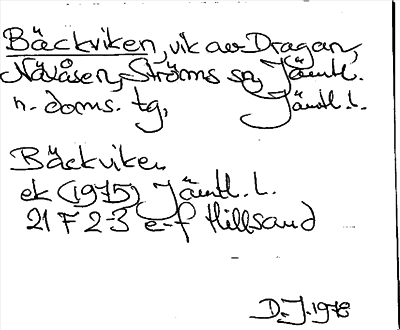 Bäckviken, vik av Dragan,
Nävåsen, Ströms sn, Jämtl.
n. doms. tg, Jämtl. l.
Bäckviken
ek (1975) Jämtl. l.
21 F 2-3 e-f Hillsand
D.J. 1978